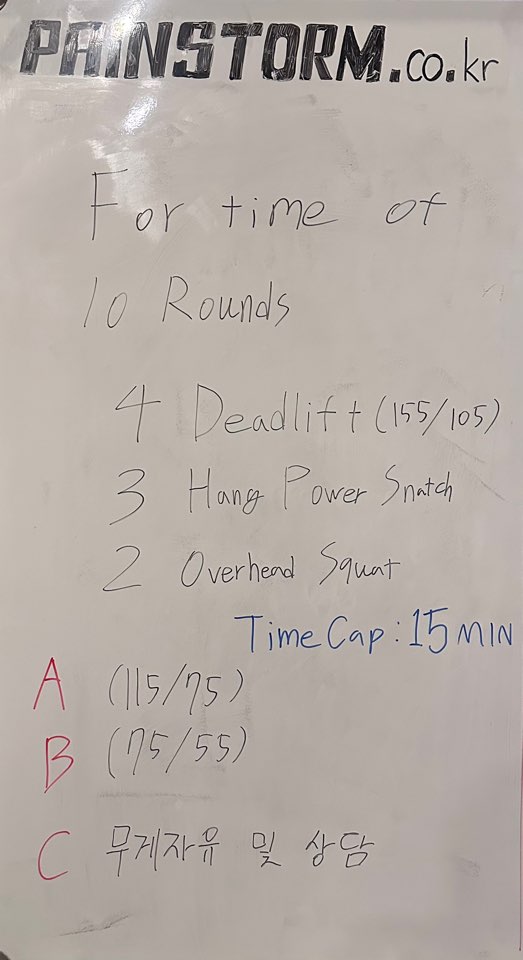 PAINSTORM.co.kr
For time of
10 Rounds
4 Deadlift (155/105)
3 Hang Power Snatch
2 Overhead Squat
Time Cap : 15 MIN
A (115/75)
B (75/55)
C 무게자유 및 상담